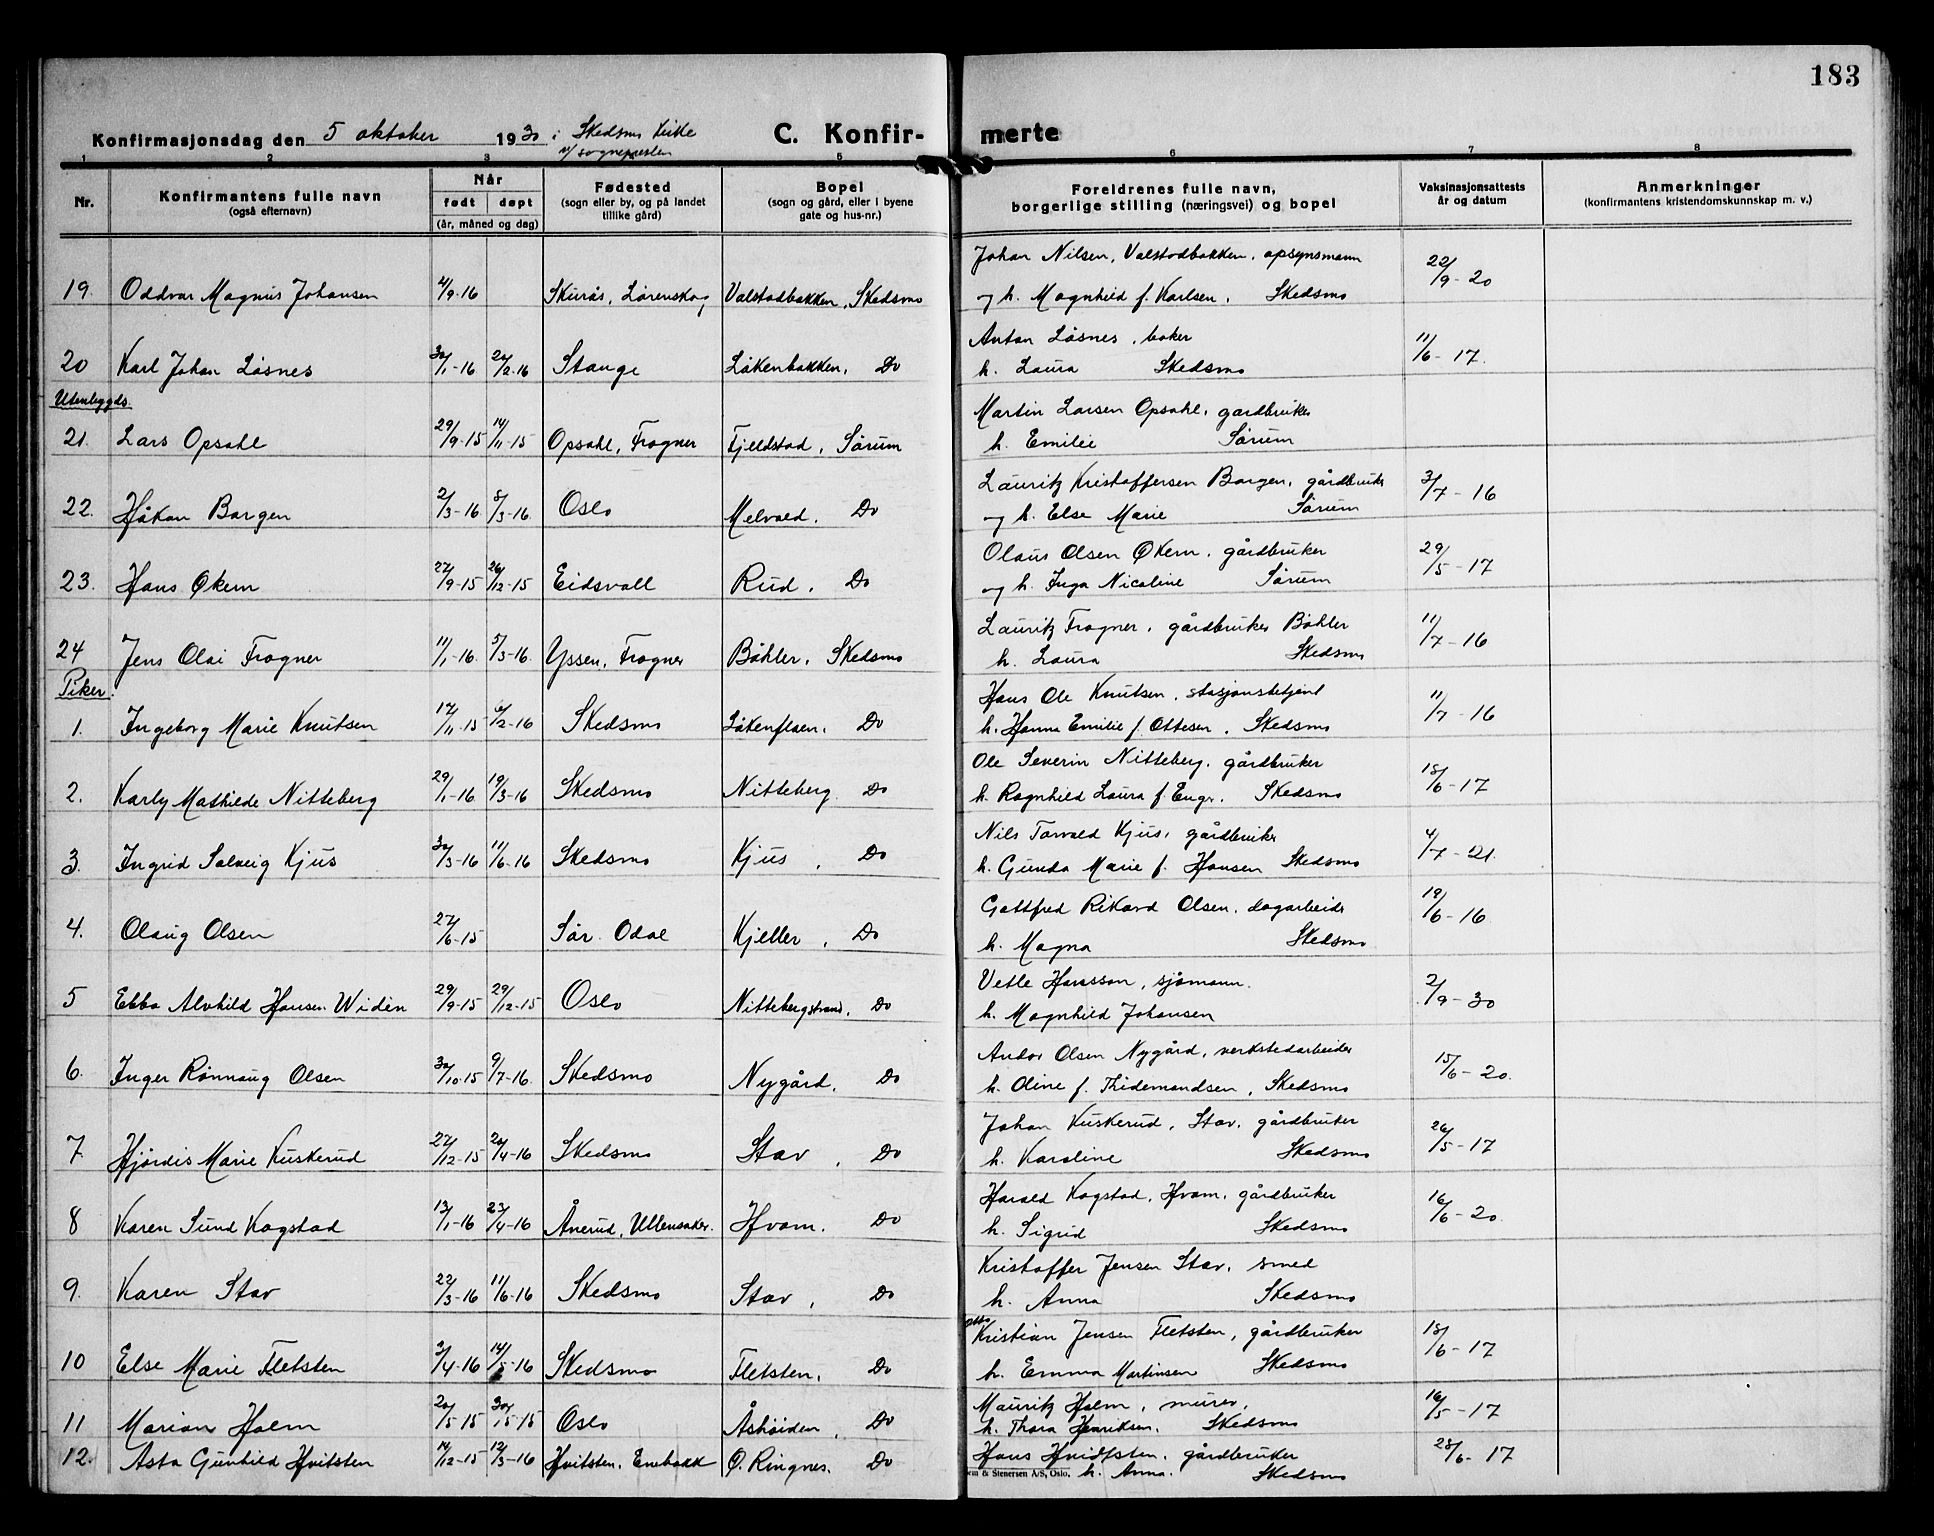 183
Konfirmasjonsdag den 5 oktober 1930 i Skedsmo kirke
v/ sognepresten
C. Konfir- merte
1 2 3 4 5 6 7 8
Nr. Konfirmantens fulle navn (også efternavn) Når født døpt (år, måned og dag) Fødested (sogn eller by, og på landet tillike gård) Bopel (sogn og gård, eller i byene gate og hus-nr.) Foreldrenes fulle navn, borgerlige stilling (næringsvei) og bopel Vaksinasjonsattests år og datum Anmerkninger (konfirmantens kristendomskunnskap m. v.)
Johan Nilsen, Valstadbakken, opsynsmann
19. Oddvar Magnus Johansen 4/9-16 Skårås, Lørenskog Valstadbakken, Skedsmo og h. Magnhild f. Karlsen, Skedsmo 22/9-20
Anton Løsnes, baker
20 Karl Johan Løsnes 30/1-16 27/2-16 Stange Løkenbakken, Do h. Laura Skedsmo 11/6-17.
Utenbygds.
Martin Larsen Opsahl, gardbruker
21. Lars Opsahl 29/9-15 14/11-15 Opsahl, Frogner Fjeldstad, Sørum h. Emilie Sørum
Lauritz Kristoffersen Borgen, gårdbruker
22. Håkon Borgen 2/3-16 8/3-16 Oslo Melvold, Do og h. Else Marie Sørum 3/7-16
Olaus Olsen Økern, gårdbruker
23. Hans Økern 27/9-15 26/12-15 Eidsvoll Rud, Do og h. Inga Nicoline Sørum 29/5-17
Lauritz Frogner, gårdbruker Bøhler
24 Jens Olai Frogner 11/1-16. 5/3-16. Yssen, Frogner Bøhler, Skedsmo h. Laura Skedsmo 11/7-16
Piker.
Hans Ole Knutsen, stasjonsbetjent
1. Ingeborg Marie Knutsen 17/11-15 6/2-16 Skedsmo Løkenflaen, Do h. Hanna Emilie f. Ottesen, Skedsmo 11/7-16
Ole Severin Nitteberg, gårdbruker
2. Karly Mathilde Nitteberg 29/1-16 19/3-16 Skedsmo Nitteberg Do h. Ragnhild Laura f. Enger, Skedsmo 18/6-17
Nils Torvald Kjus, gårdbruker
3. Ingrid Solveig Kjus 30/3-16 11/6-16 Skedsmo Kjus, Do h. Gunda Marie f. Hansen Skedsmo 4/7-21.
Gottfred Rikard Olsen, dagarbeider
4. Olaug Olsen 27/6-15 Sør Odal Kjeller, Do h. Magna Skedsmo 19/6-16
Vetle Hansson, sjømann.
5 Ebba Alvhild Hansen Widèn 29/9-15 29/12-15 Oslo Nittebergstrand, Do h. Magnhild Johansen 2/9-30
Andor Olsen Nygård, verkstedarbeider
6. Inger Rønnaug Olsen 30/10-15 9/7-16. Skedsmo Nygård, Do h. Oline f. Thidemandsen, Skedsmo 15/6-20.
Johan Kuskerud, Stav, gårdbruker
7. Hjørdis Marie Kuskerud 27/12-15 24/4-16 Skedsmo Stav, Do h. Karoline Skedsmo 26/5-17
Harald Kogstad, Hvam, gårdbruker
8 Karen Sund Kogstad 13/1-16 23/4-16 Ånerud, Ullensaker. Hvam, Do h. Sigrid Skedsmo 16/6-20.
Kristoffer Jensen Stav, smed
9. Karen Stav 22/3-16 11/6-16 Skedsmo Stav, Do h. Anna Skedsmo
Kristian Jensen Fletsten, gårdbruker
10 Else Marie Fletsten 3/4-16 14/5-16 Skedsmo Fletsten, Do h. Emma Martinsen Skedsmo 18/6-17
Mauritz Holm, murer,
11 Marian Holm 20/5-15 Oslo Åshøiden, Do h. Thora Henriksen, Skedsmo 16/5-17
Hans Hvidtsten, gårdbruker
12. Asta Gunhild Hvitsten 14/12-15 12/3-16 Hvitsten, Enebakk Ø. Ringnes, Do h. Anna. Skedsmo 28/6-17
& Stenersen A/S, Oslo.